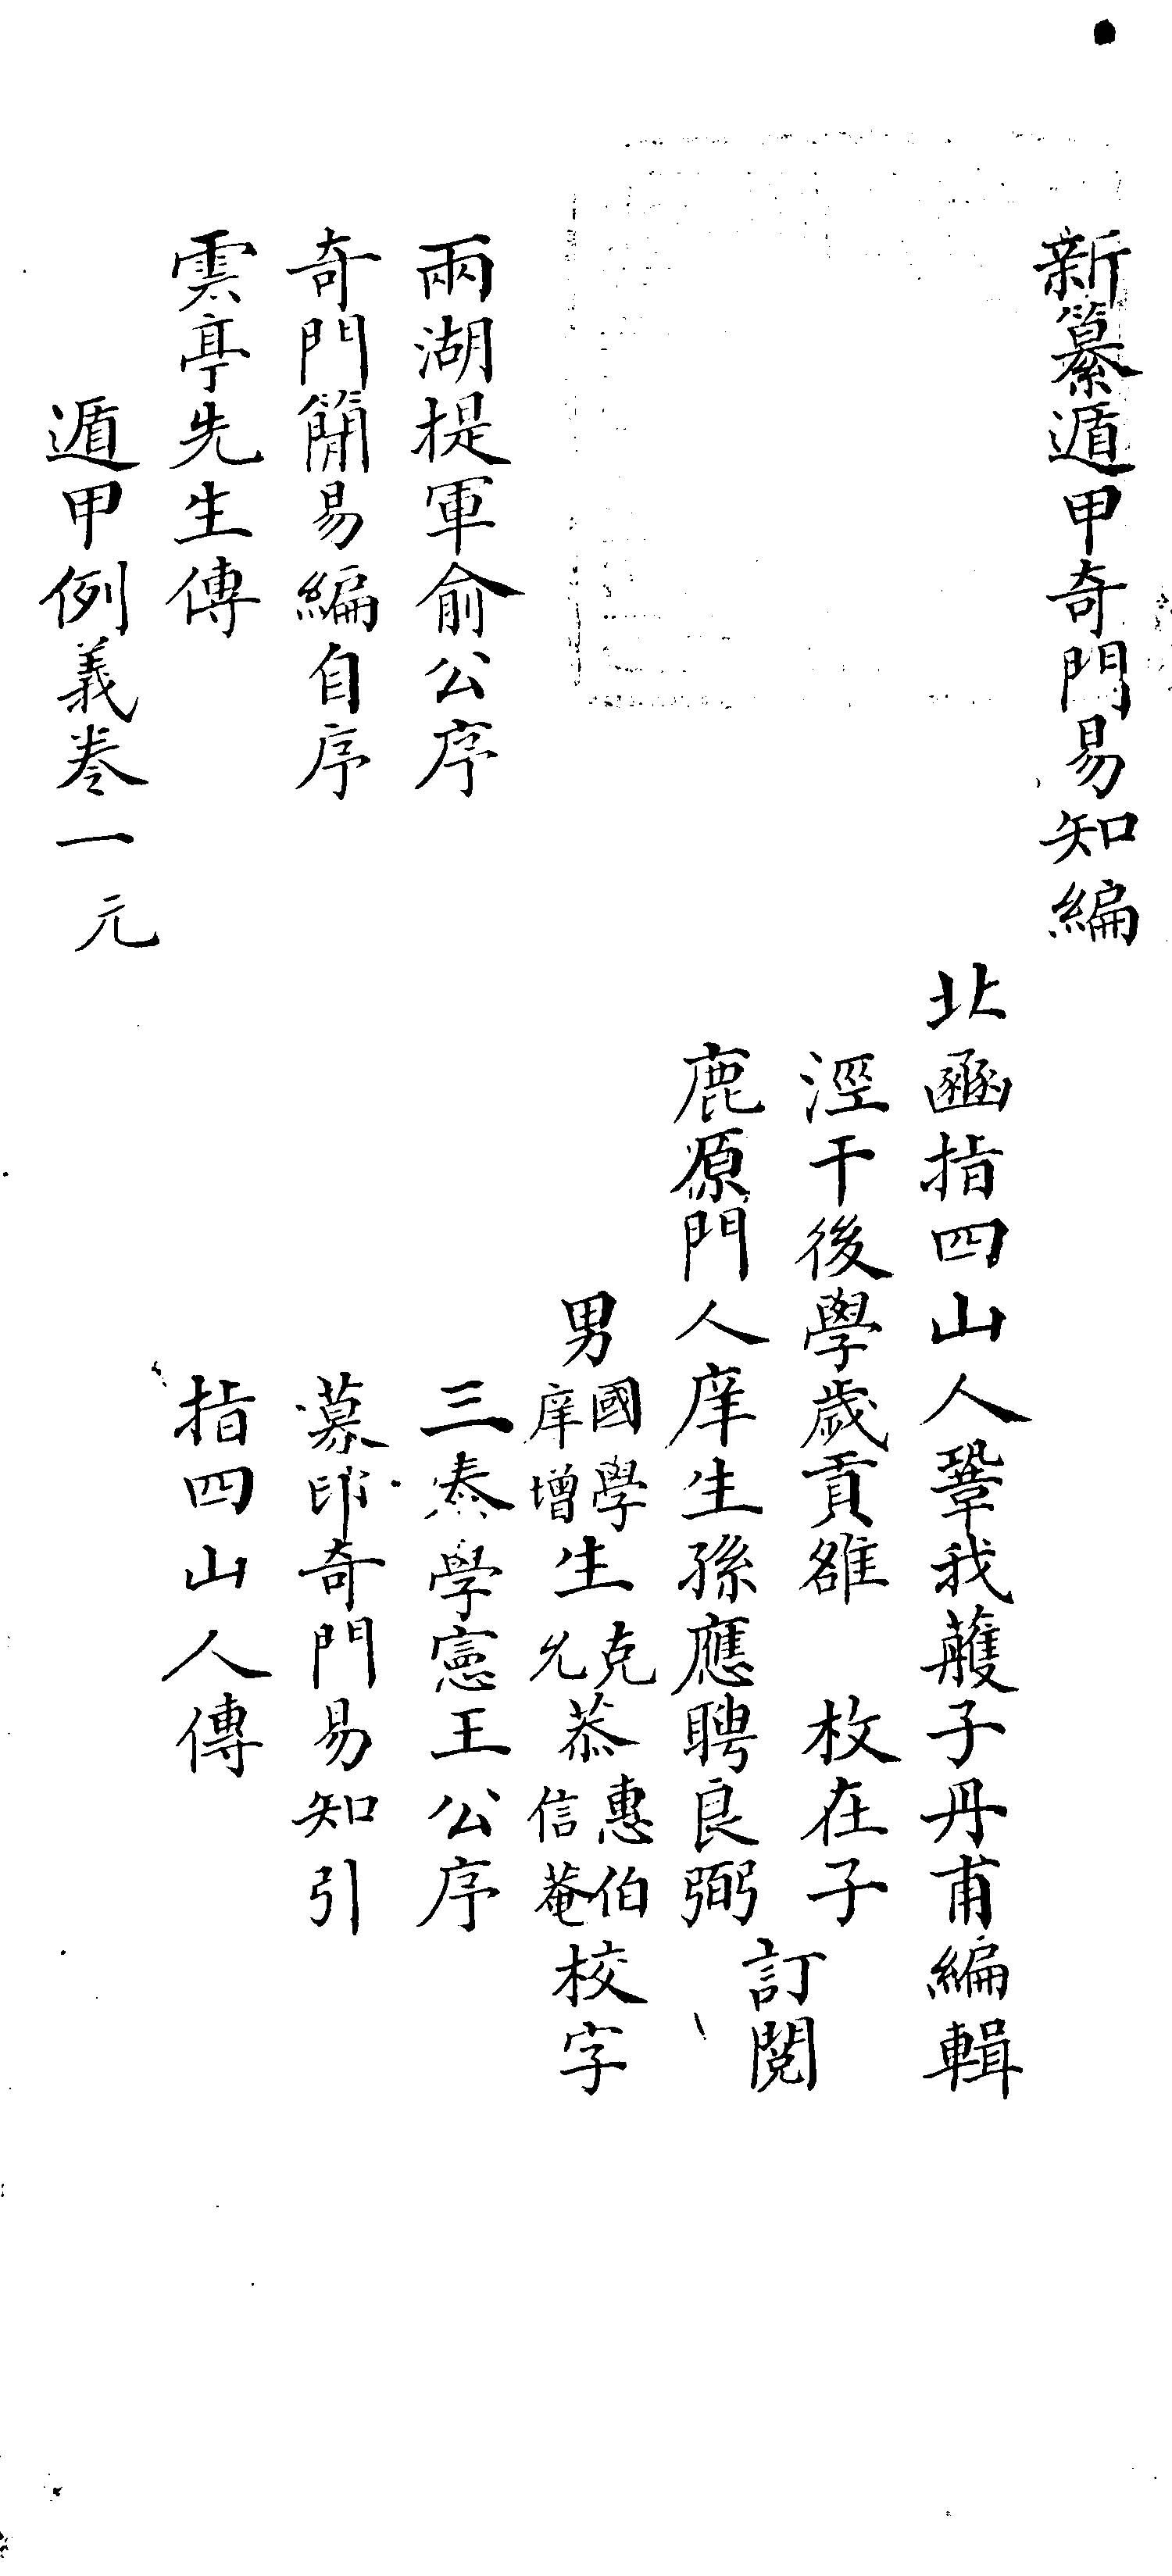 新纂遁甲奇門易知編
北函指四山人鞏我蒦子丹甫編輯
涇干後學歲貢雒　枚在子
鹿原門人庠生孫應聘良弼
訂閱
男國學庠增生克允恭惠伯信菴校字
兩湖提軍俞公序
三秦學憲王公序
奇門簡易編自序
募印奇門易知引
雲亭先生傳
指四山人傳
遁甲例義卷一元